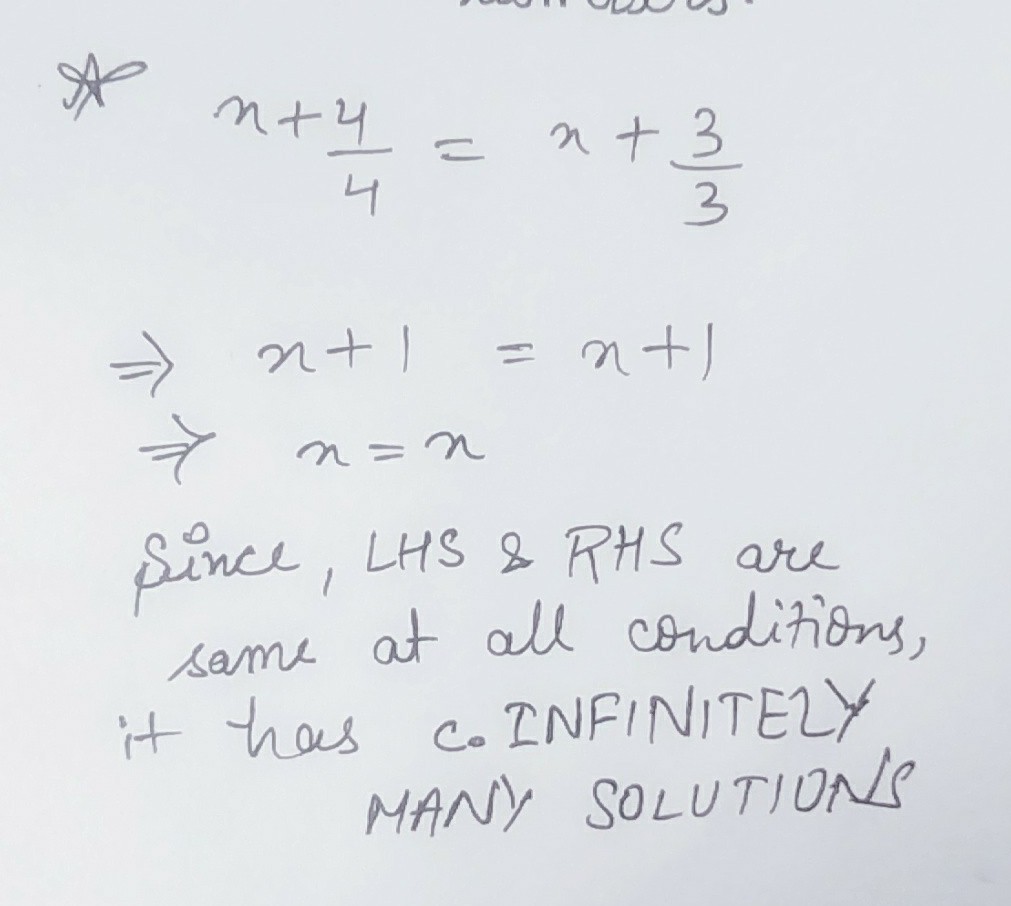 n + 4/4 = n + 3/3
⇒ n + 1 = n + 1
⇒ n = n
Since, LHS & RHS are
same at all conditions,
it has c. INFINITELY
MANY SOLUTIONS